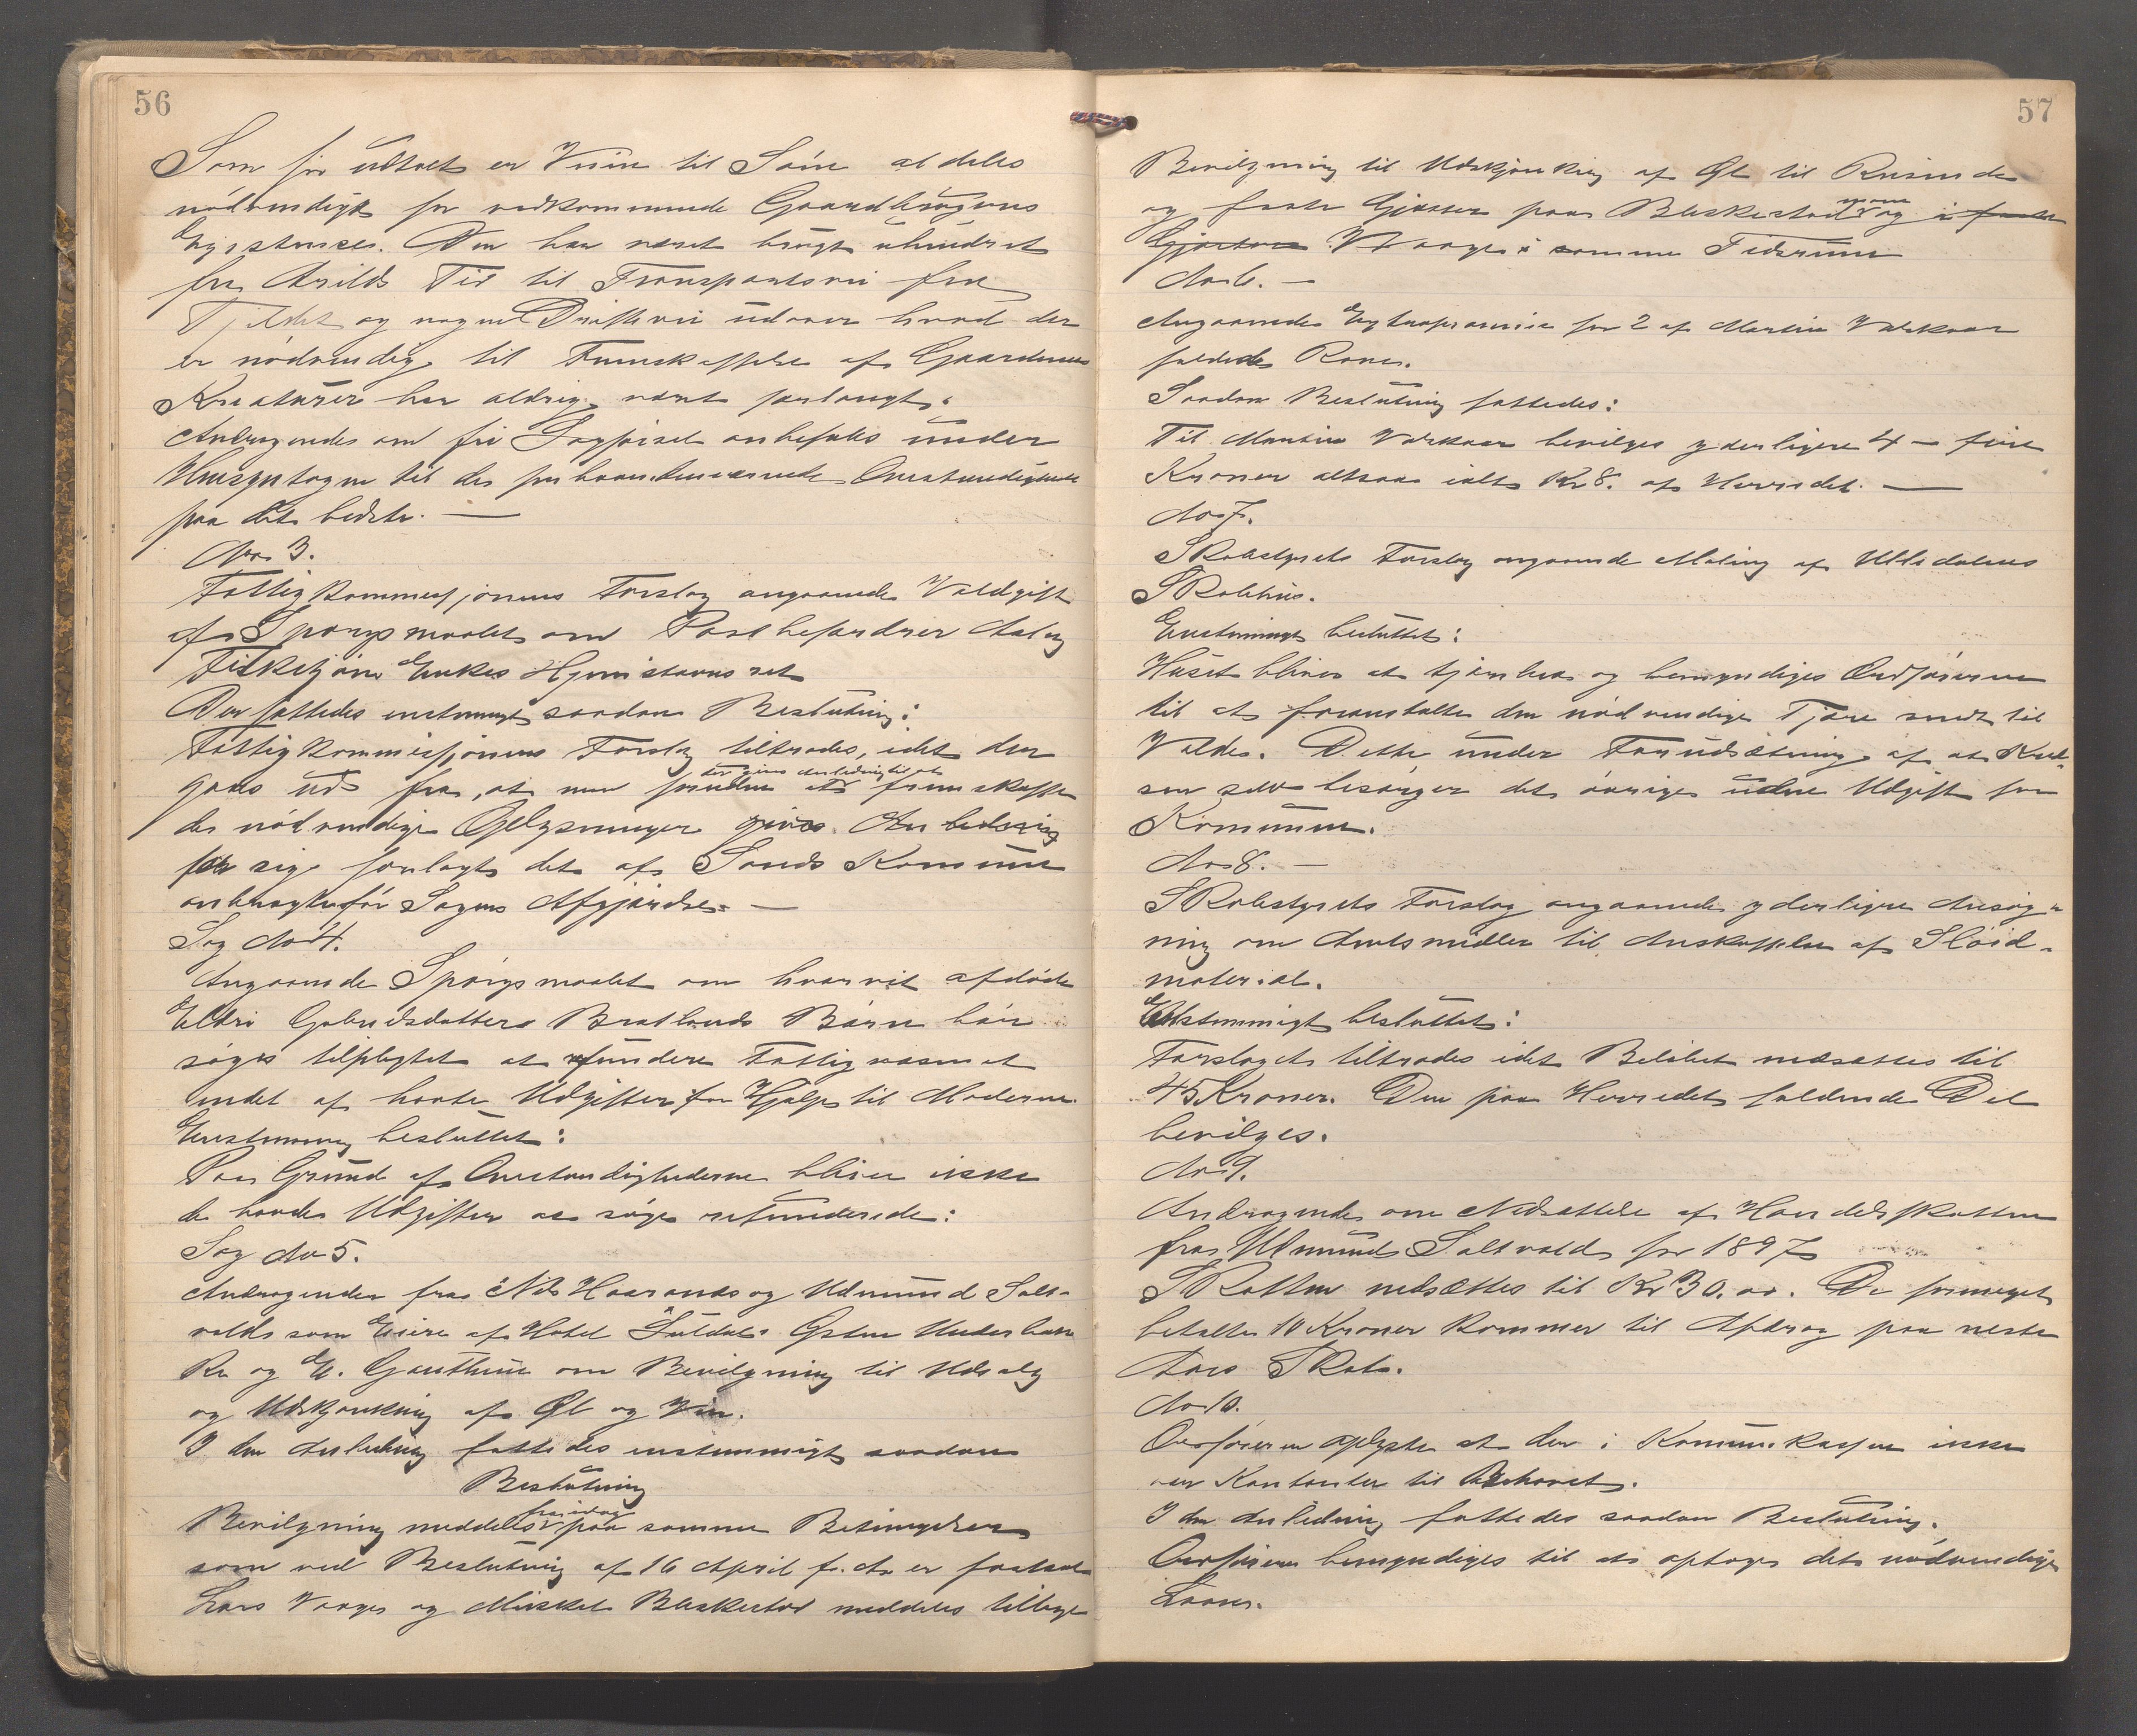 56
Som før udtalt er Veien til Søen aldeles
nødvendigt for vedkommende Gaardbrugeres
Existenser. Den har været brugt uhindret
fra Arilds Tid til Transportvei fra
Fjeldet og nogen Driftevei udover hvad der
er nødvendig til Fremskaffelse af Gaardenes
Kreaturer har aldrig været forlangt.
Andragendet om fri Sagførsel anbefales under
Hensyntagen til de forhaandenværende Omstændigheder
paa det bedste. —
No 3.
Fattigkommissjonens Forslag angaaende Voldgift
af Spørgsmaalet om Postbefordrer Aslag
Fisketjøns Enkes Hjemstavnsret
Der fattedes enstemmigt saadan Beslutning:
Fattigkommissjonens Forslag tiltrædes, idet der
gaaes ud fra, at man forinden der gives Anledning til at fremskaffe
de nødvendige Oplysninger gives Anledning
for sig forlagt det af Sands Kommune
anbragte før Sagens Afgjørelse. —
Sag No 4.
Angaaende Spørgsmaalet om hvorvidt afdøde
Eldri Gabrielsdatters Bratlands Børn bør
søges tilpligtet at refundere Fattigvæsenet
endel af havte Udgifter for Hjælp til Moderen.
Enstemmig besluttet:
Paa Grund af Omstændighederne bliver ikke
de havde Udgifter at søge refunderede:
Sag No 5.
Andragender fra Nils Haarands og Udmund Salt-
volds som Eiere af Hotel Suldal, Østen Underbak
ke og E. Gauthun om Bevilgning til Udsalg
og Udskjænkning af Øl og Vin.
I den Anledning fattedes enstemmigt saadan
Beslutning
Bevilgning meddeles fra idag paa samme Betingelser
som ved Beslutning af 16 April f. A. er fastsat
Lars Vaage og Mikkel Bleskestad meddeles tillige
57
Bevilgning til Udskjænking af Øl til Reisende
og faste Gjæster paa Bleskestadmoen og i faste
Gjæster Vaage i samme Tidsrum
No 6. —
Angaaende Extrapræmie for 2 af Martin Vaskaar
fældede Ræver.
Saadan Beslutning fattedes:
Til Martin Vaskaar bevilges yderligere 4 — fire
Kroner altsaa ialt Kr 8. af Herredet. —
No 7.
Skolestyrets Forslag angaaende Maling af Ulladalens
Skolehus.
Enstemmigt besluttet:
Huset bliver at tjærebræ og bemyndiges Ordføreren
til at foranstalte den nødvendige Tjære sendt til
Valde. Dette under Forudsætning af at Kred-
sen selv besørger det øvrige uden Udgift for
Kommunen.
No 8. —
Skolestyrets Forslag angaaende yderligere Ansøg-
ning om Amtsmidler til Anskaffelse af Sløid-
material.
Enstemmigt besluttet:
Forslaget tiltrædes idet Beløbet nedsættes til
45 Kroner. Den paa Herredet faldende Del
bevilges.
No 9.
Andragende om Nedsættelse af Handelsskatten
fra Udmund Saltvold for 1897
Skatten nedsættes til Kr 30.00. De formeget
betalte 10 Kroner kommer til Afdrag paa neste
Aars Skat.
No 10.
Ordføreren oplyste at der i Kommunekassen ikke
var Kontanter til Behovet.
I den Anledning fattedes saadan Beslutning.
Ordføreren bemyndiges til at optage det nødvendige
Laan.